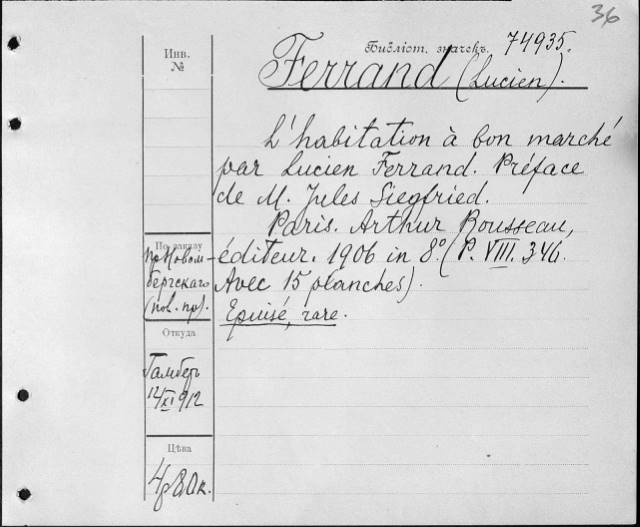 36
Библіот. значекъ. 74935.
Ferrand (Lucien).
Инв.
№
L'habitation à bon marché
par Lucien Ferrand. Préface
de M. Jules Siegfried.
Paris. Arthur Rousseau,
éditeur. 1906 in 8°. (P. VIII. 346.
Avec 15 planches).
Epuisé, rare.
По заказу
пр. Новом-
бергскаго
(пов. пр).
Откуда
Гамберъ
12/XI 912
Цѣна
4р 80к.